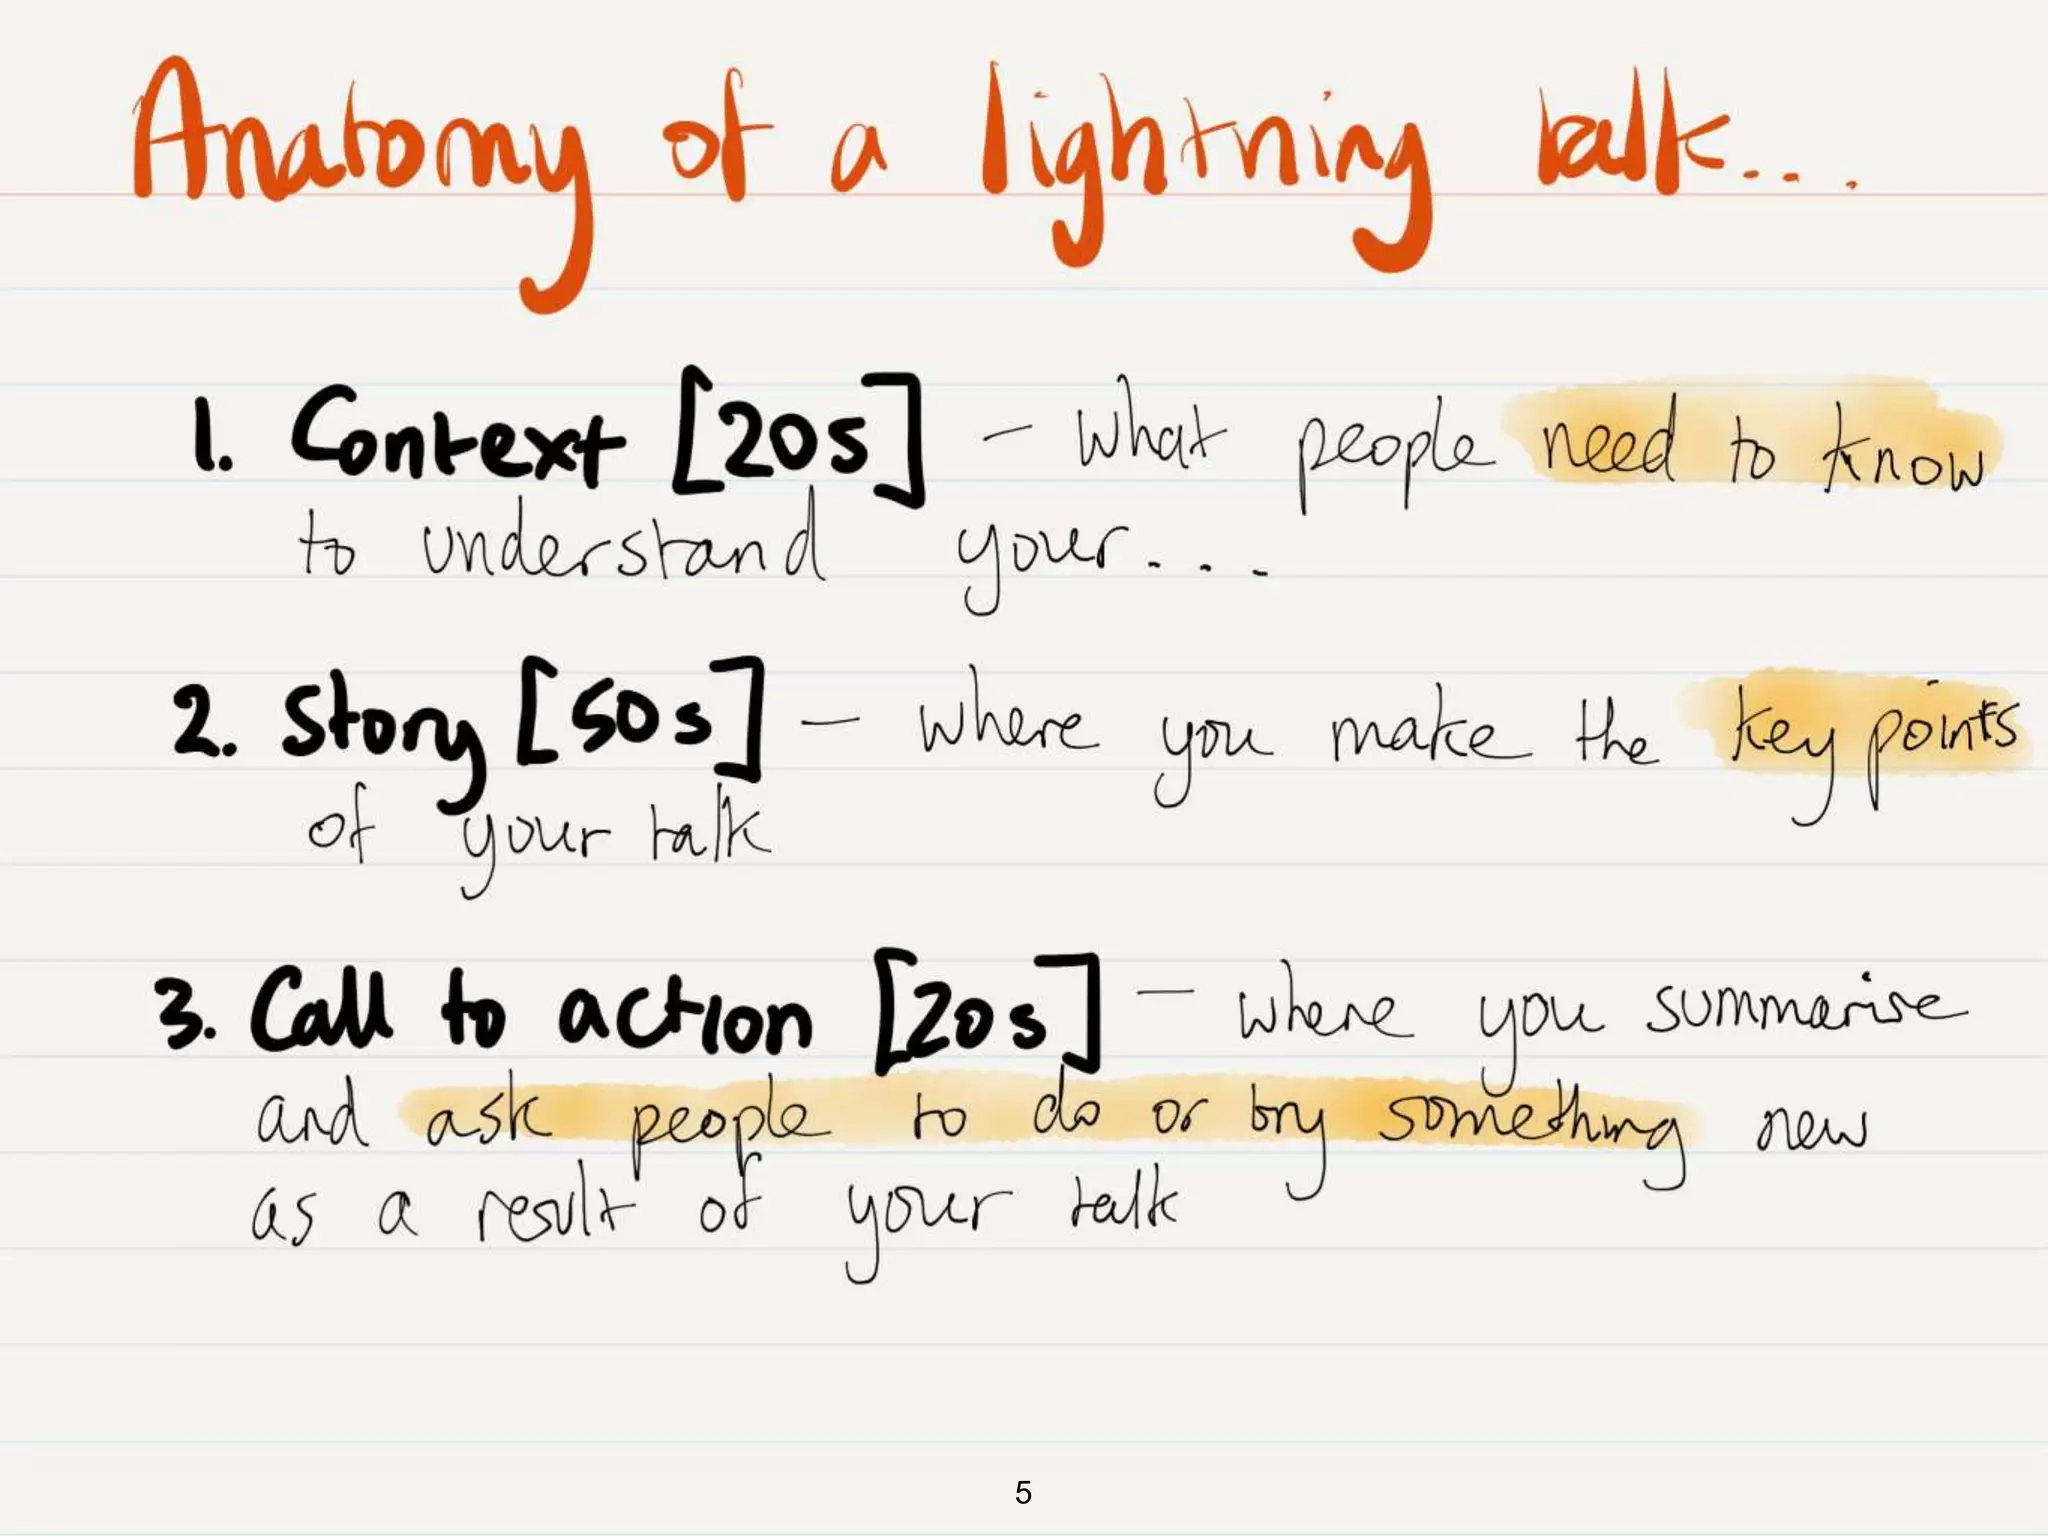 Anatomy of a lightning talk...
1. Context [20s] – what people need to know
to understand your...
2. Story [50s] – where you make the key points
of your talk
3. Call to action [20s] – where you summarise
and ask people to do or try something new
as a result of your talk
5